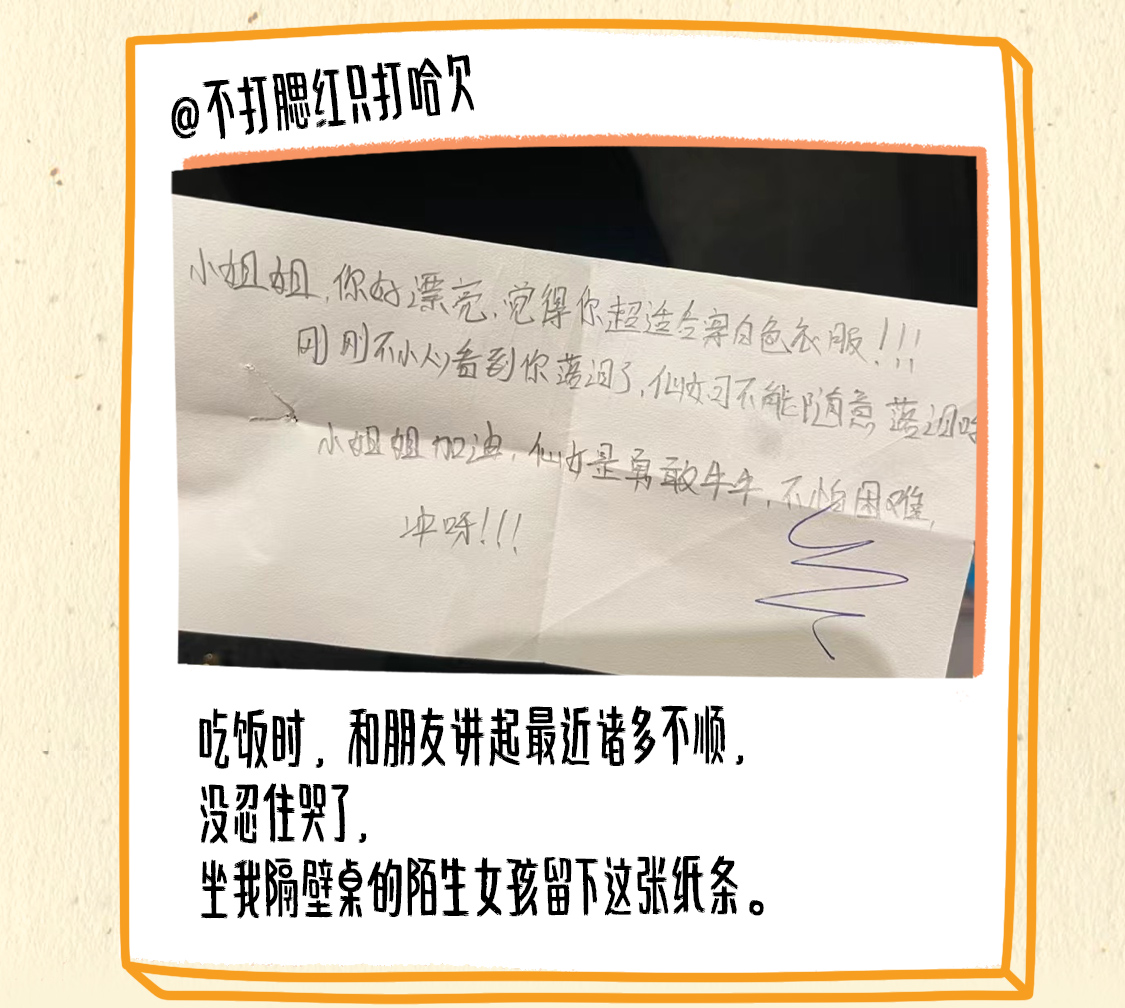 @不打腮红只打哈欠
小姐姐,你好漂亮,觉得你超适合穿白色衣服!!!
刚刚不小心看到你落泪了,仙女可不能随意落泪哈
小姐姐加油,仙女是勇敢牛牛,不怕困难,
冲呀!!!
吃饭时，和朋友讲起最近诸多不顺，
没忍住哭了，
坐我隔壁桌的陌生女孩留下这张纸条。